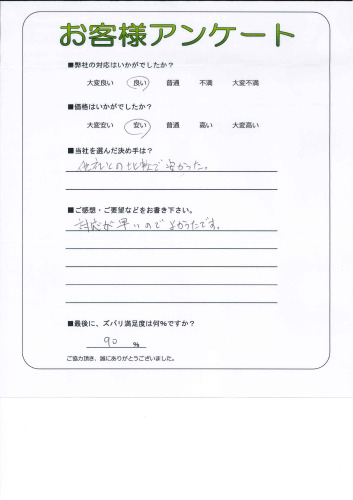 お客様アンケート
■弊社の対応はいかがでしたか?
大変良い 良い 普通 不満 大変不満
■価格はいかがでしたか?
大変安い 安い 普通 高い 大変高い
■当社を選んだ決め手は?
他社との比較で安かった。
■ご感想・ご要望などをお書き下さい。
対応が早いのでよかったです。
■最後に、ズバリ満足度は何%ですか?
90 %
ご協力頂き、誠にありがとうございました。